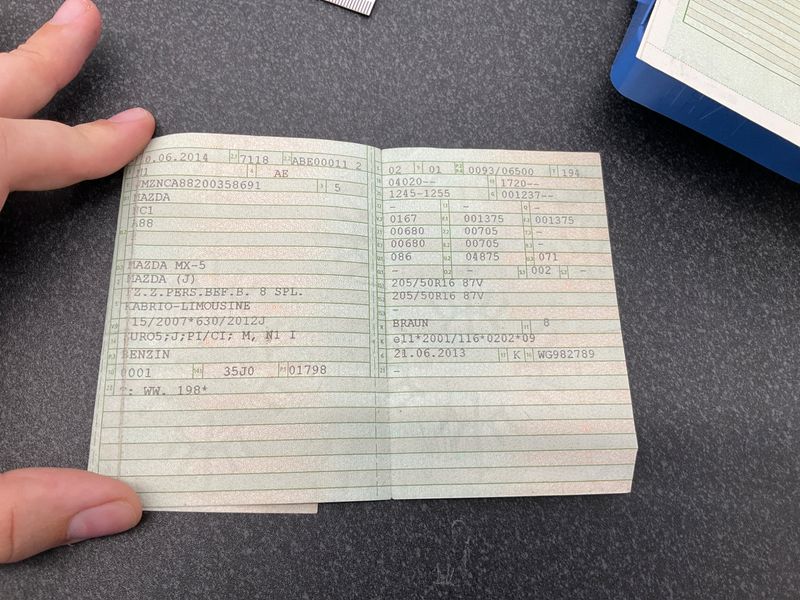 0.06.2014 7118 ABE00011 2
AE
MZNCA88200358691 5
MAZDA
NC1
A88
MAZDA MX-5
MAZDA (J)
FZ.Z.PERS.BEF.B. 8 SPL.
KABRIO-LIMOUSINE
715/2007*630/2012J
EURO5;J;PI/CI; M, N1 I
BENZIN
0001 35J0 01798
*: WW. 198*
02 01 0093/06500 194
04020-- 1720--
1245-1255 001237--
- - -
0167 001375 001375
00680 00705 -
00680 00705 -
086 04875 071
- - 002 -
205/50R16 87V
205/50R16 87V
-
BRAUN 8
e11*2001/116*0202*09
21.06.2013 K WG982789
-